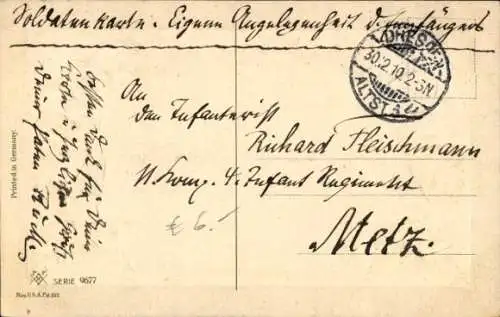 Soldatenkarte. Eigene Angelegenheit d. Empfängers
DRESDEN-
30.12.10.2-3N.
ALTST.
An
den Infanterist
Richard Fleischmann
11. Komp. 4. Infant Regiment
Metz.
£ 6.-
Besten Dank für Deine
Karte u. herzliche Grüße
Printed in Germany.
SERIE 9677